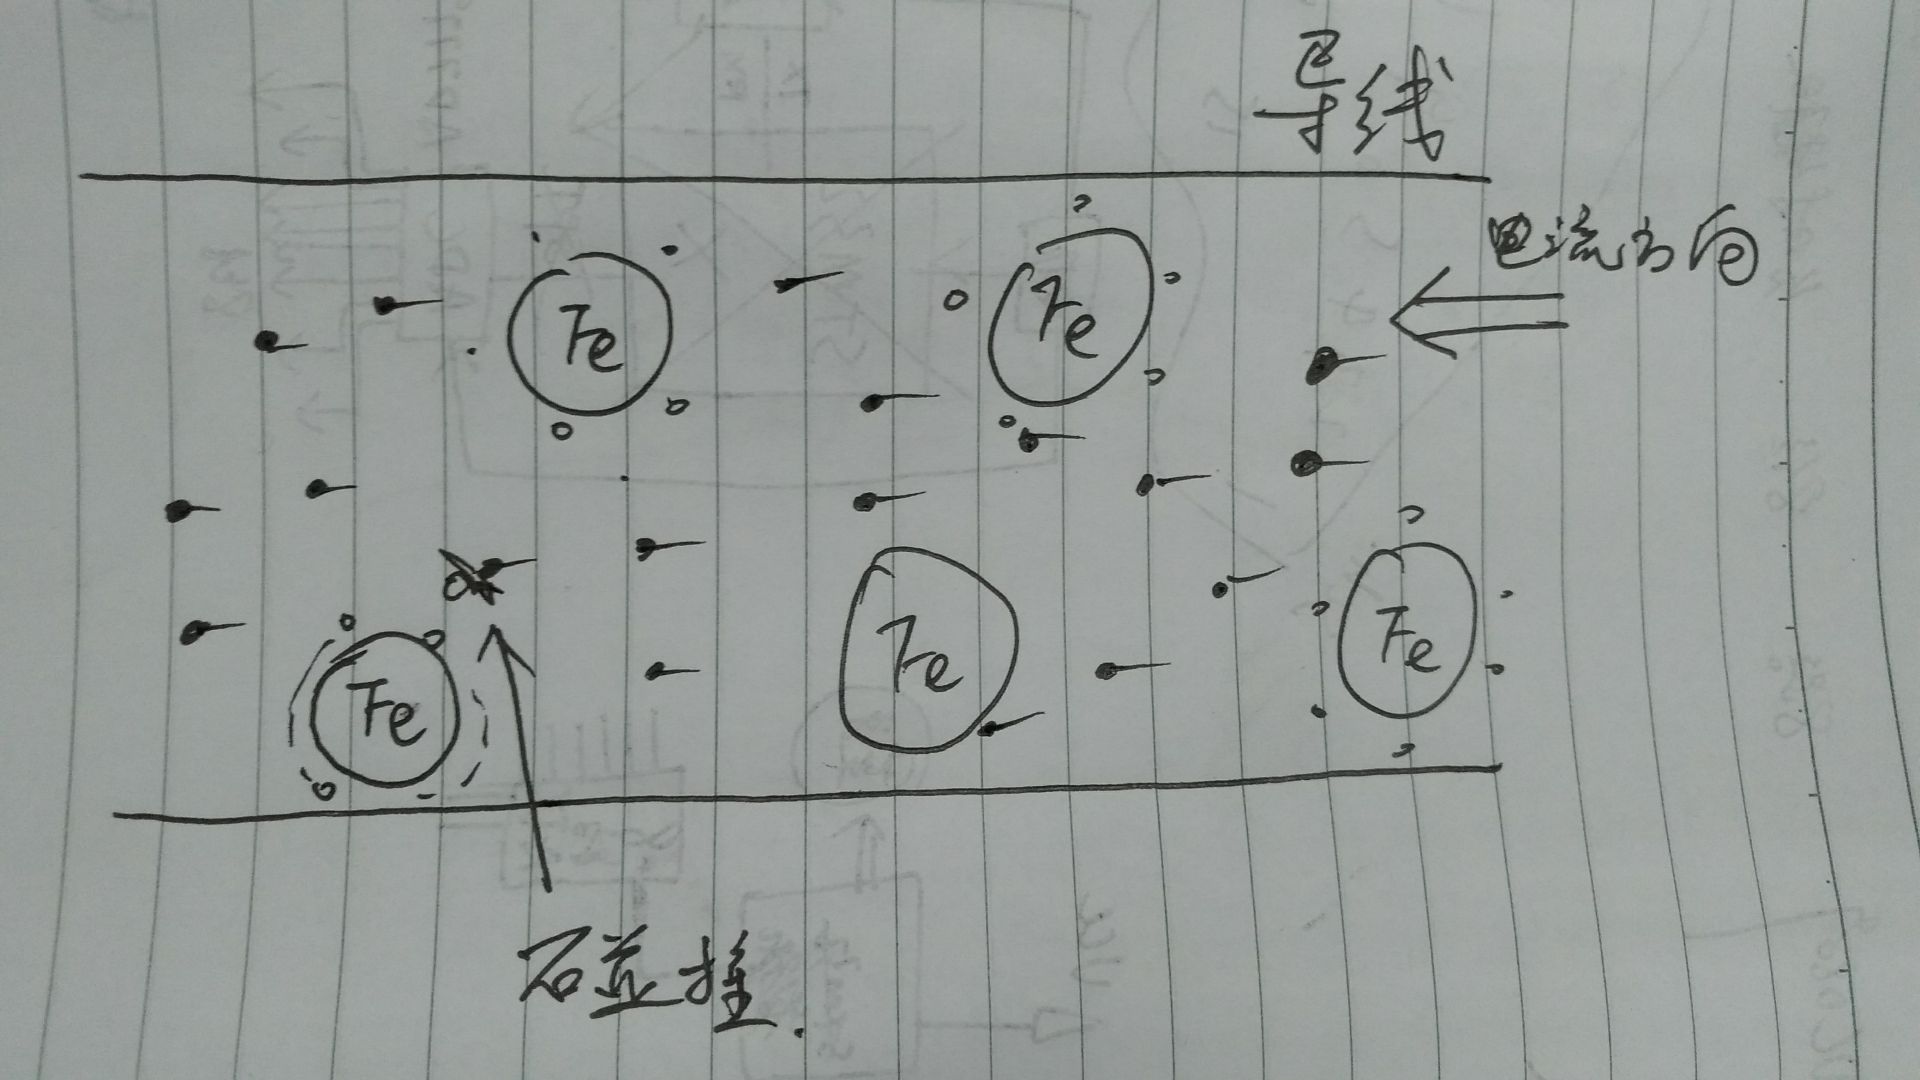 导线
电流方向
Fe
Fe
Fe
Fe
Fe
碰撞.